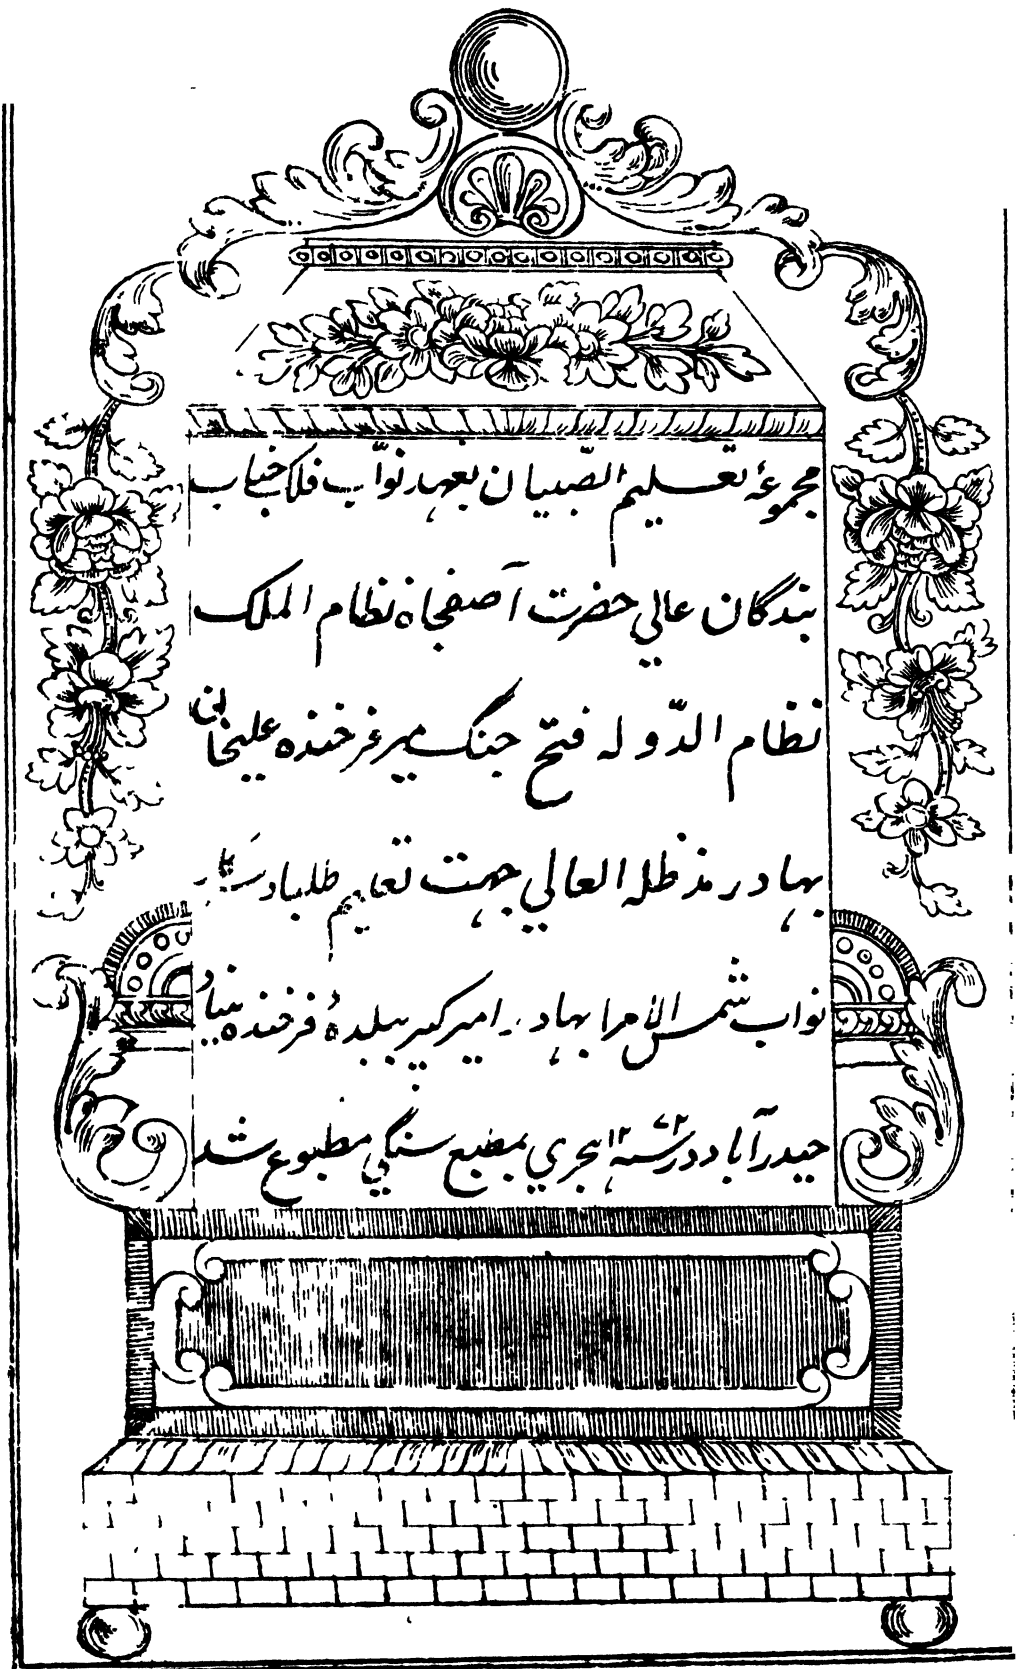 مجموعۂ تعلیم الصّبیان بعهد نوّاب فلک جناب
بندگان عالي حضرت آصفجاه نظام الملک
نظام الدّوله فتح جنگ میر فرخنده علیخان
بهادر مد ظله العالي جهت تعلیم طلبا
نواب شمس الأمرا بهادر امیر کبیر ببلدۂ فرخنده بنیاد
حیدرآباد در سنه ١٢ هجري بمطبع سنگي مطبوع شد